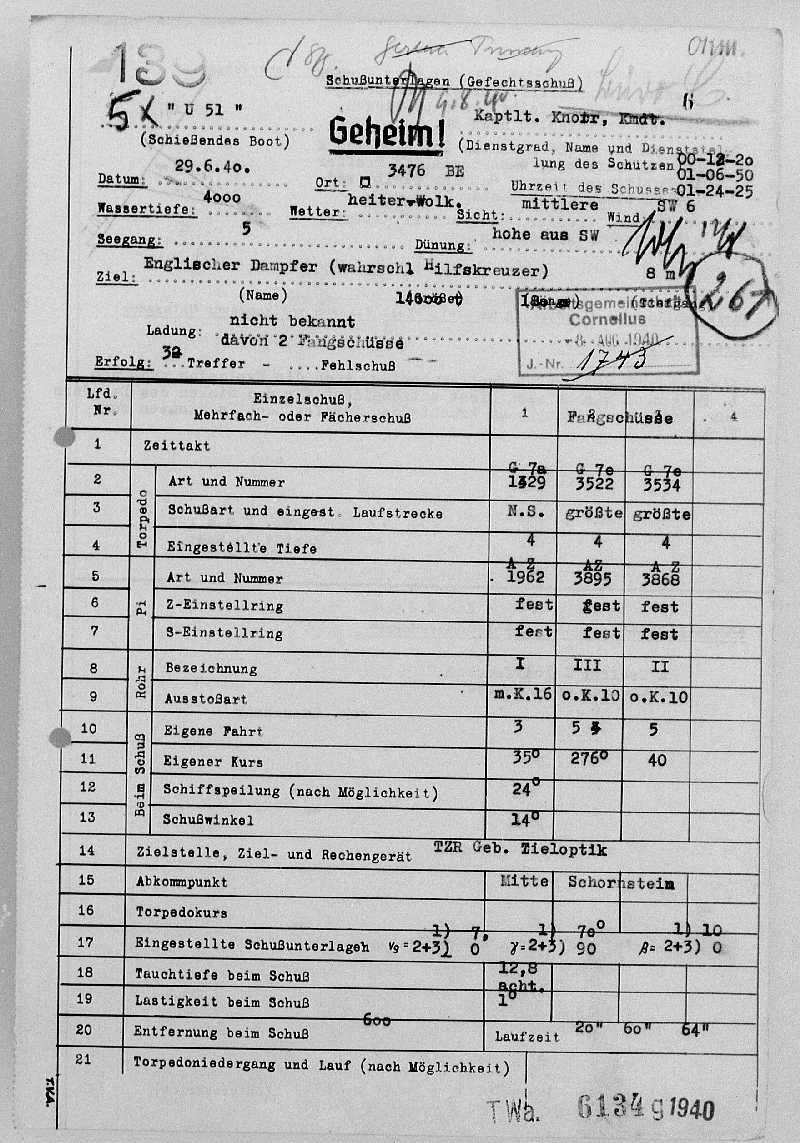 139
Schußunterlagen (Gefechtsschuß)
9.8.40
6
5 X " U 51 "
Kaptlt. Knorr, Kmdt.
(Schießendes Boot)
Geheim!
(Dienstgrad, Name und Dienststel-
lung des Schützen 00-12-20
01-06-50
Datum: 29.6.40.
Ort: 3476 BE
Uhrzeit des Schusses 01-24-25
Wassertiefe: 4000
Wetter: heiter-Wolk.
Sicht: mittlere
Wind SW 6
Seegang: 5
Dünung: hohe aus SW
Ziel: Englischer Dampfer (wahrschl Hilfskreuzer)
8 m
261
(Name)
(Größe)
(Länge)
(Tiefgang)
Ladung: nicht bekannt
davon 2 Fangschüsse
Arbeitsgemeinschaft
Cornelius
-8. AUG 1940
J.-Nr. 1743
Erfolg: ...Treffer - ....Fehlschuß
Lfd. Nr. Einzelschuß, Mehrfach- oder Fächerschuß 1 Fangschüsse 4
1 Zeittakt
Torpedo
2 Art und Nummer G 7a 1329 G 7e 3522 G 7e 3534
3 Schußart und eingest. Laufstrecke N.S. größte größte
4 Eingestellte Tiefe 4 4 4
Pi
5 Art und Nummer A Z 1962 AZ 3895 A Z 3868
6 Z-Einstellring fest fest fest
7 S-Einstellring fest fest fest
Rohr
8 Bezeichnung I III II
9 Ausstoßart m.K.16 o.K.10 o.K.10
Beim Schuß
10 Eigene Fahrt 3 5 5
11 Eigener Kurs 35° 276° 40
12 Schiffspeilung (nach Möglichkeit) 24°
13 Schußwinkel 14°
14 Zielstelle, Ziel- und Rechengerät TZR Geb. Zieloptik
15 Abkommpunkt Mitte Schornstein
16 Torpedokurs
1) 7, 1) 70° 1) 10
17 Eingestellte Schußunterlageh vg = 2+3) 0 γ = 2+3) 90 β = 2+3) 0
18 Tauchtiefe beim Schuß 12,8
acht.
19 Lastigkeit beim Schuß 1°
20 Entfernung beim Schuß 600 Laufzeit 20" 60" 64"
21 Torpedoniedergang und Lauf (nach Möglichkeit)
TKA.
T Wa. 6134 g 1940